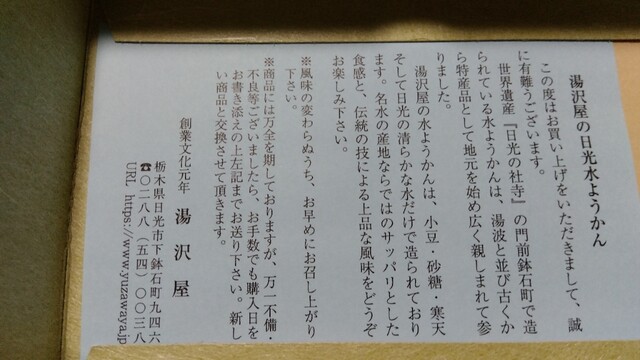 湯沢屋の日光水ようかん
この度はお買い上げをいただきまして、誠
に有難うございます。
世界遺産『日光の社寺』の門前鉢石町で造
られている水ようかんは、湯波と並び古くか
ら特産品として地元を始め広く親しまれて参
りました。
湯沢屋の水ようかんは、小豆・砂糖・寒天
そして日光の清らかな水だけで造られており
ます。名水の産地ならではのサッパリとした
食感と、伝統の技による上品な風味をどうぞ
お楽しみ下さい。
※風味の変わらぬうち、お早めにお召し上がり
下さい。
※商品には万全を期しておりますが、万一不備・
不良等ございましたら、お手数でも購入日を
お書き添えの上左記までお送り下さい。新し
い商品と交換させて頂きます。
創業文化元年 湯沢屋
栃木県日光市下鉢石町九四六
☎〇二八八（五四）〇〇三八
URL https://www.yuzawaya.jp